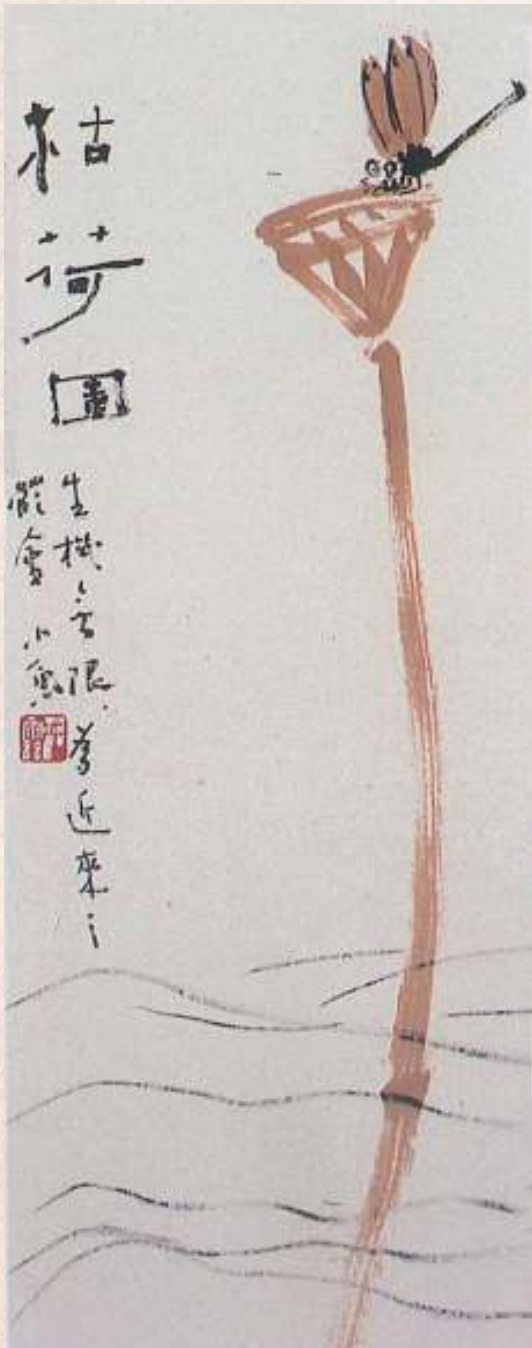 枯荷圖
生機無限為近來之
體會 小魚